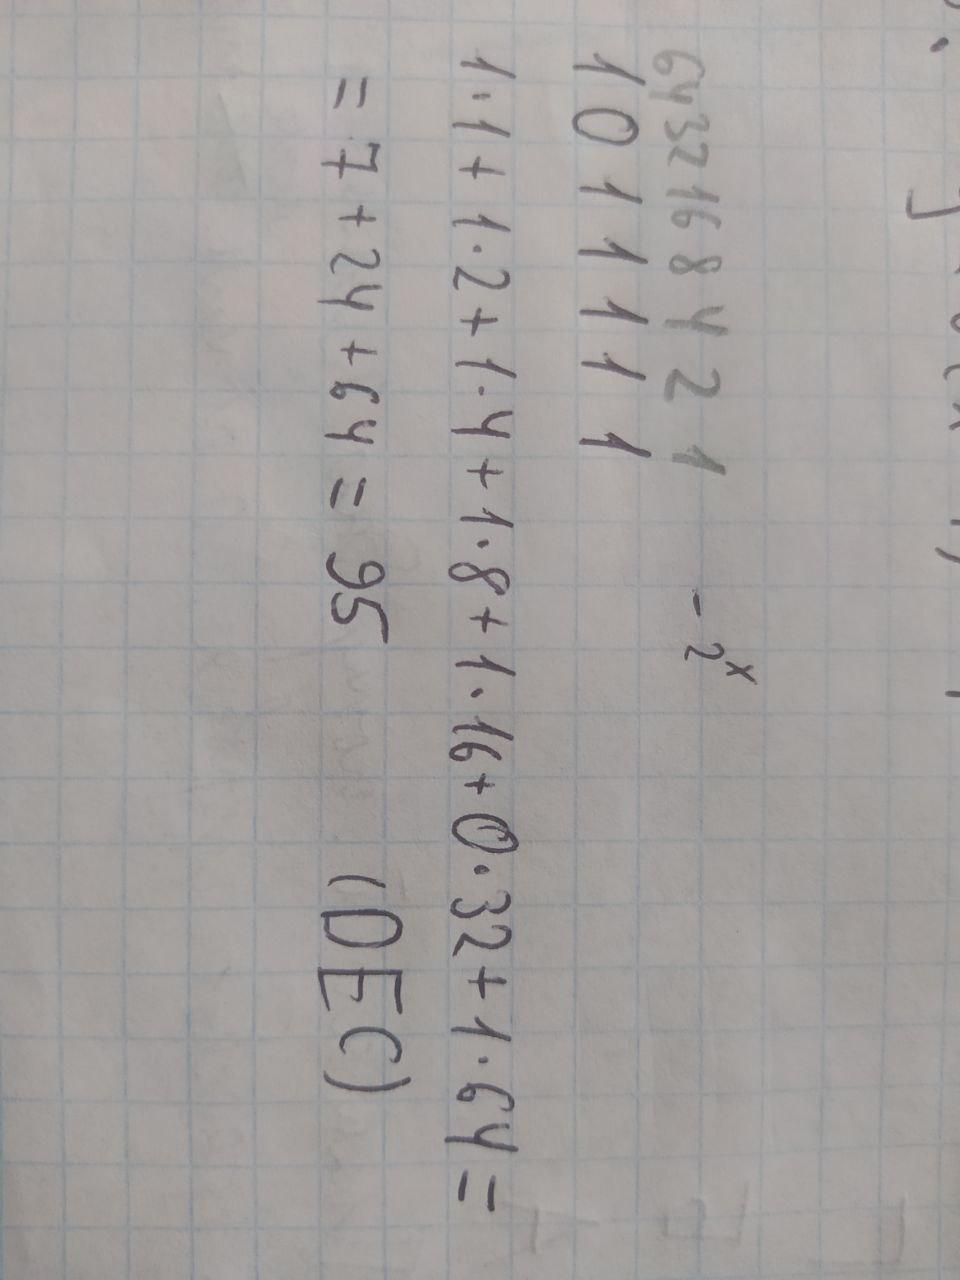 64 32 16 8 4 2 1 - 2^x
1 0 1 1 1 1 1
1·1+1·2+1·4+1·8+1·16+0·32+1·64=
=7+24+64=95 (DEC)